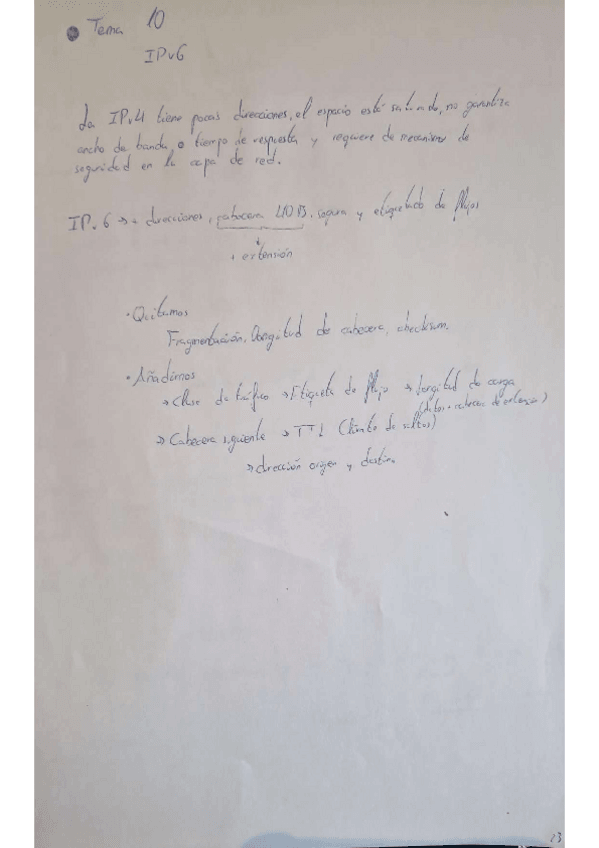 Tema 10
IPv6
La IPv4 tiene pocas direcciones, el espacio está saturado, no garantiza
ancho de banda o tiempo de respuesta y requiere de mecanismos de
seguridad en la capa de red.
IPv6 → + direcciones, cabecera 40B, segura y etiquetado de flujos
+ extensión
· Quitamos
Fragmentación, longitud de cabecera, checksum.
· Añadimos
→ Clase de tráfico → Etiqueta de flujo → longitud de carga
(datos + cabecera de extensión)
→ Cabecera siguiente → TTL (límite de saltos)
→ dirección origen y destino
23